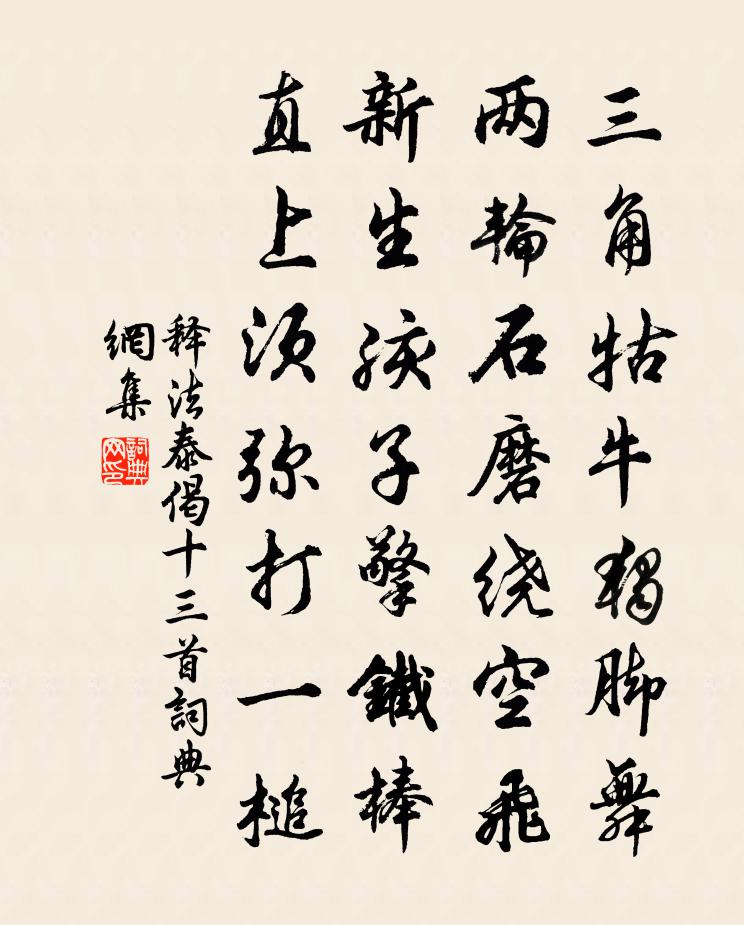 三角牯牛独脚舞
两輪石磨绕空飛
新生孩子擎鐵棒
直上须弥打一槌
释法泰偈十三首詞典
網集
詞典
网印